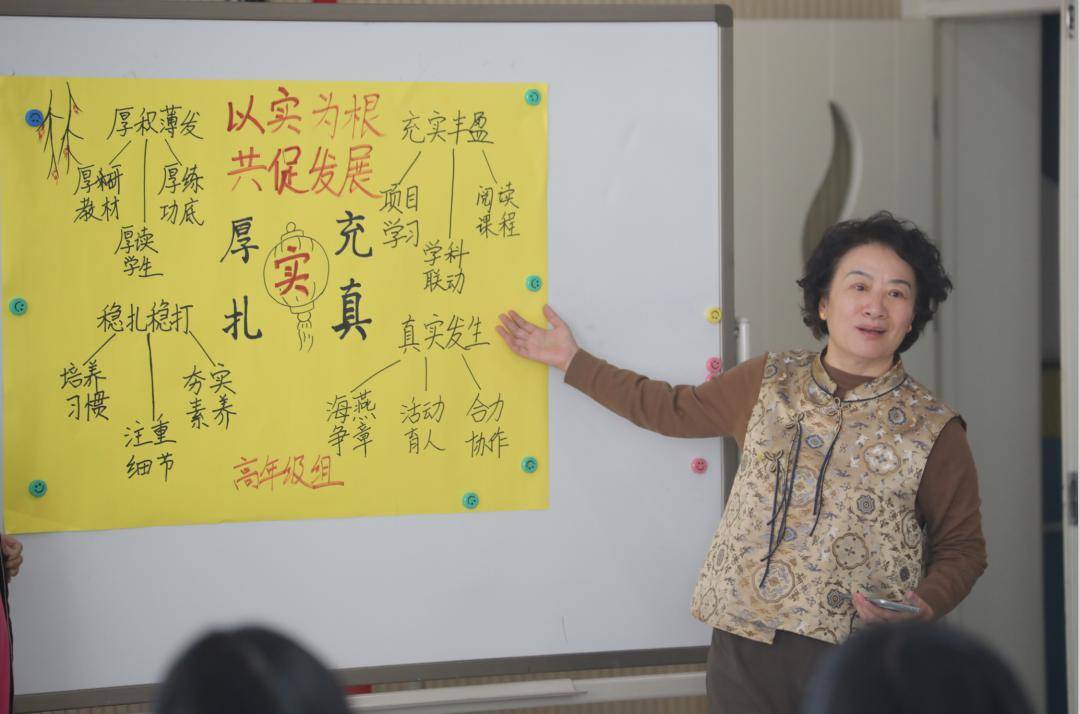 以实为根
共促发展
厚积薄发
厚研
教材
厚读
学生
厚练
功底
充实丰盈
项目
学习
学科
联动
阅读
课程
厚
充
实
扎
真
稳扎稳打
培养
习惯
注重
细节
夯实
素养
真实发生
海燕
争章
活动
育人
合力
协作
高年级组